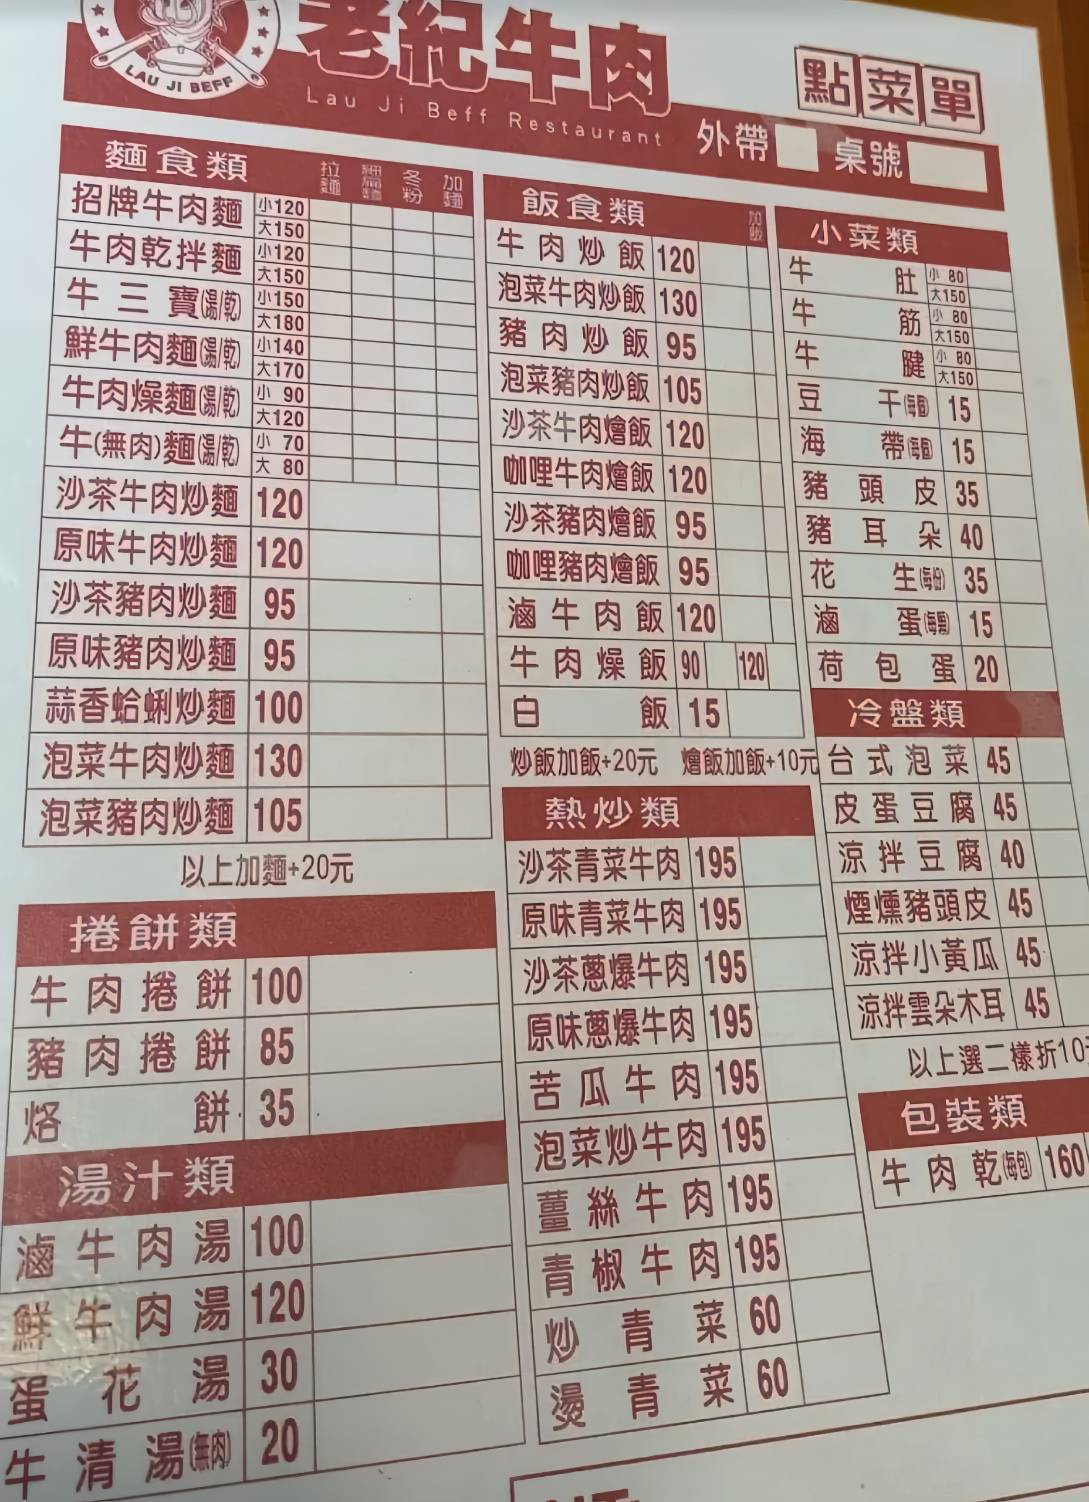 LAU JI BEFF
老紀牛肉
Lau Ji Beff Restaurant
點菜單
外帶 桌號
麵食類 拉麵 細扁麵 冬粉 加麵
招牌牛肉麵 小120 大150
牛肉乾拌麵 小120 大150
牛三寶(湯/乾) 小150 大180
鮮牛肉麵(湯/乾) 小140 大170
牛肉燥麵(湯/乾) 小 90 大120
牛(無肉)麵(湯/乾) 小 70 大 80
沙茶牛肉炒麵 120
原味牛肉炒麵 120
沙茶豬肉炒麵 95
原味豬肉炒麵 95
蒜香蛤蜊炒麵 100
泡菜牛肉炒麵 130
泡菜豬肉炒麵 105
以上加麵+20元
捲餅類
牛肉捲餅 100
豬肉捲餅 85
烙餅 35
湯汁類
滷牛肉湯 100
鮮牛肉湯 120
蛋花湯 30
牛清湯(無肉) 20
飯食類 加飯
牛肉炒飯 120
泡菜牛肉炒飯 130
豬肉炒飯 95
泡菜豬肉炒飯 105
沙茶牛肉燴飯 120
咖哩牛肉燴飯 120
沙茶豬肉燴飯 95
咖哩豬肉燴飯 95
滷牛肉飯 120
牛肉燥飯 90 120
白飯 15
炒飯加飯+20元 燴飯加飯+10元
熱炒類
沙茶青菜牛肉 195
原味青菜牛肉 195
沙茶蔥爆牛肉 195
原味蔥爆牛肉 195
苦瓜牛肉 195
泡菜炒牛肉 195
薑絲牛肉 195
青椒牛肉 195
炒青菜 60
燙青菜 60
小菜類
牛肚 小 80 大150
牛筋 小 80 大150
牛腱 小 80 大150
豆干(每個) 15
海帶(每個) 15
豬頭皮 35
豬耳朵 40
花生(每份) 35
滷蛋(每顆) 15
荷包蛋 20
冷盤類
台式泡菜 45
皮蛋豆腐 45
涼拌豆腐 40
煙燻豬頭皮 45
涼拌小黃瓜 45
涼拌雲朵木耳 45
以上選二樣折10元
包裝類
牛肉乾(每包) 160